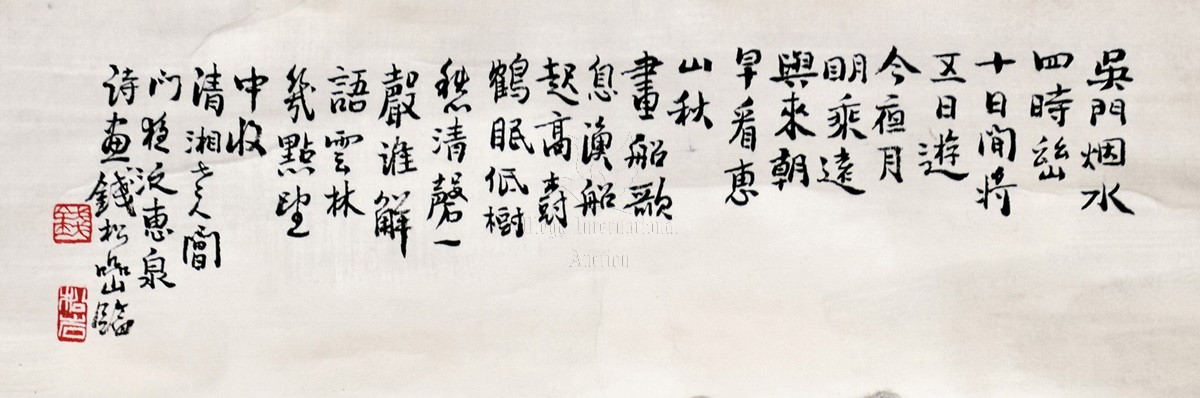 吳門烟水
四時幽
十日間將
五日遊
今夜月
明乘遠
興來朝
早看惠
山秋
畫船歌
息漁船
起高壽
鶴眠低樹
愁清磬一
聲誰解
語雲林
幾點墨
中收
清湘老人閶
門發泛惠泉
詩畫錢松嵒臨
錢
松岩